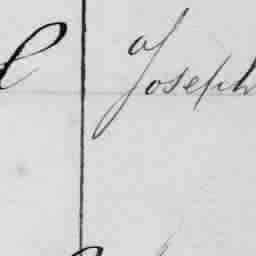 of
Joseph